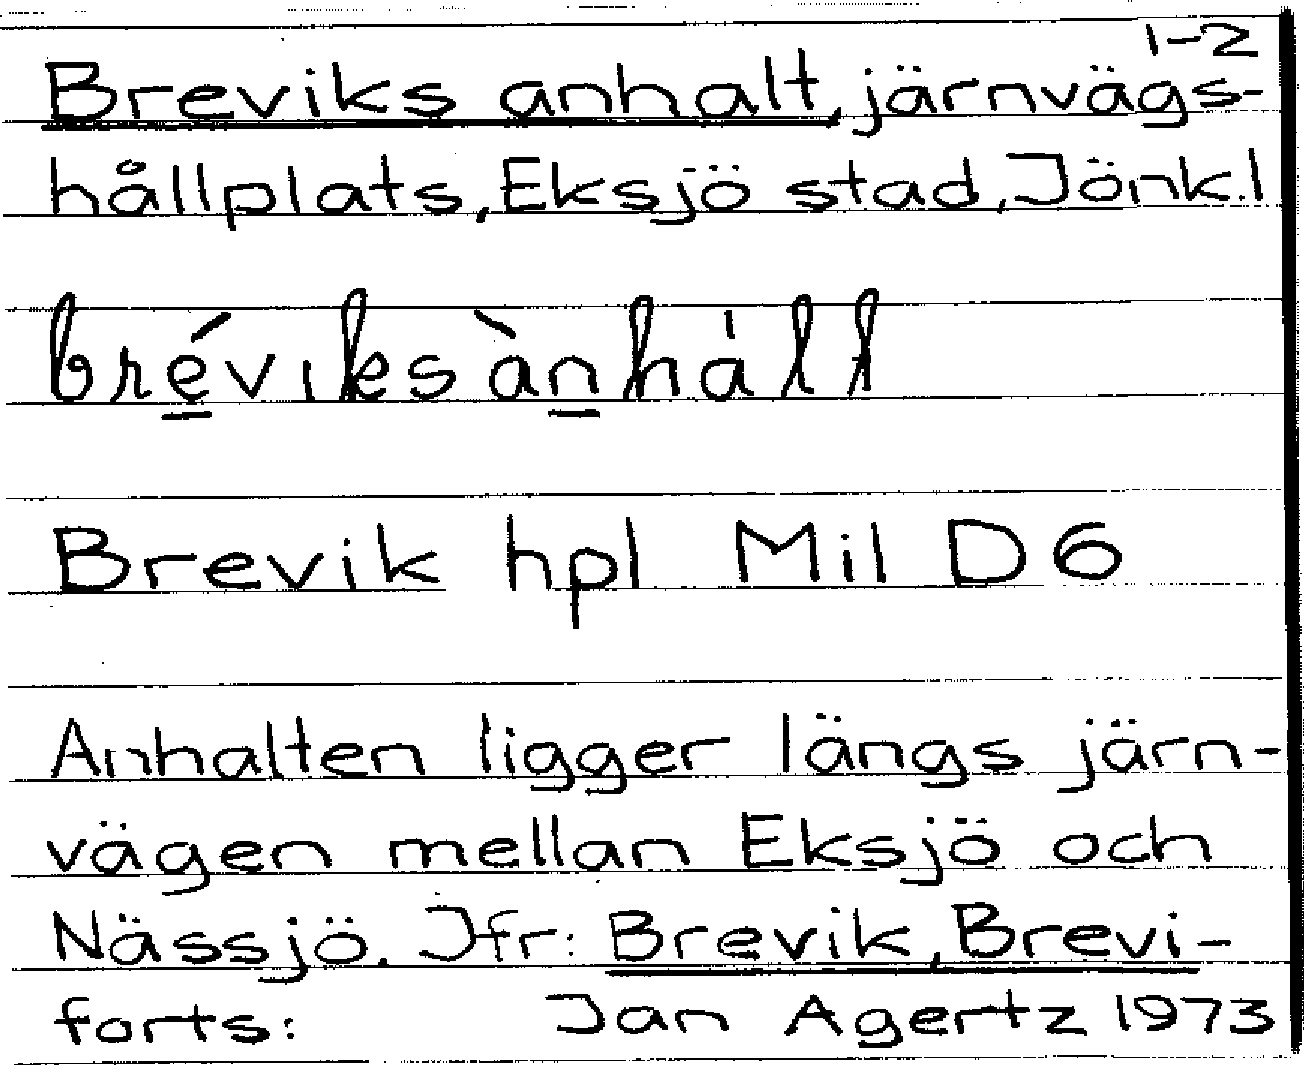 1-2
Breviks anhalt, järnvägs-
hållplats, Eksjö stad, Jönk.l
bréviksànhált
Brevik hpl Mil D6
Anhalten ligger längs järn-
vägen mellan Eksjö och
Nässjö. Jfr: Brevik, Brevi-
forts: Jan Agertz 1973